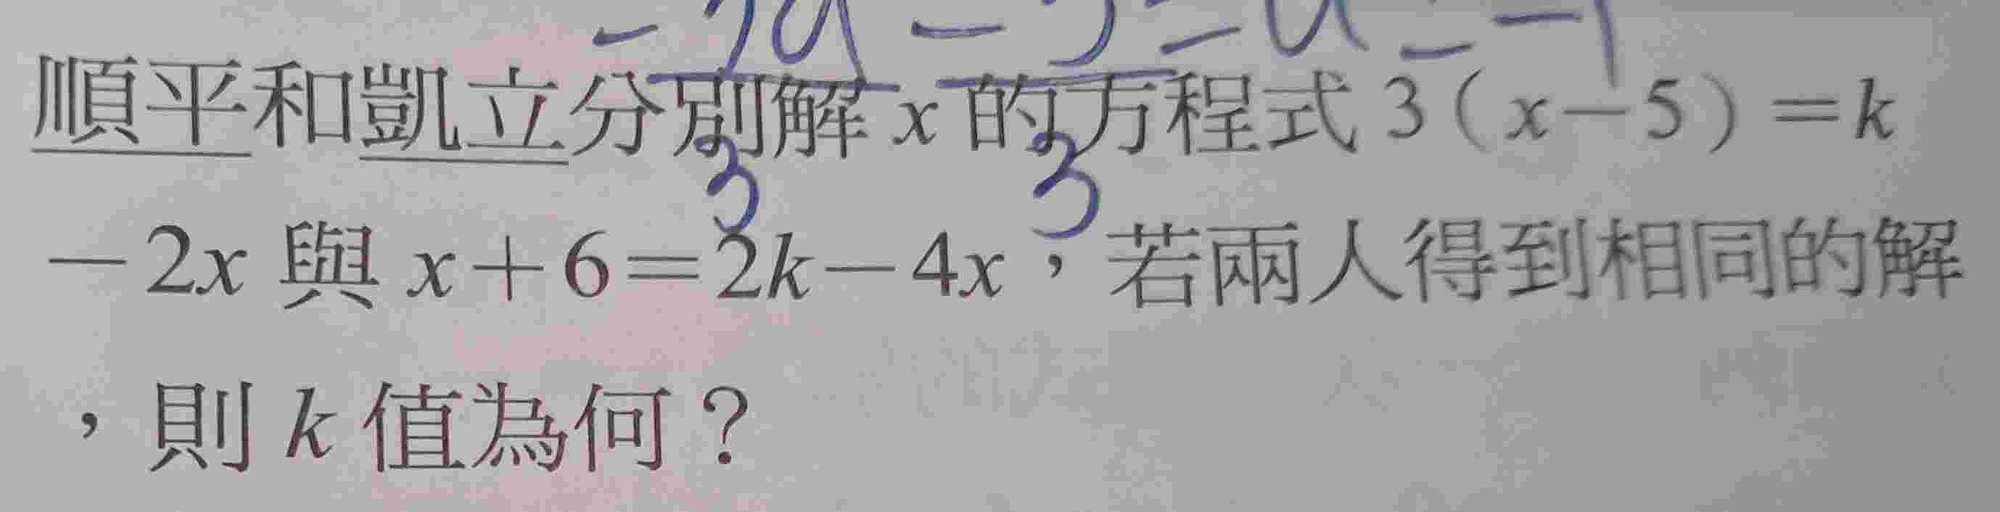 順平和凱立分別解 x 的方程式 3（x－5）＝k
－2x 與 x＋6＝2k－4x，若兩人得到相同的解
，則 k 值為何？
3 3